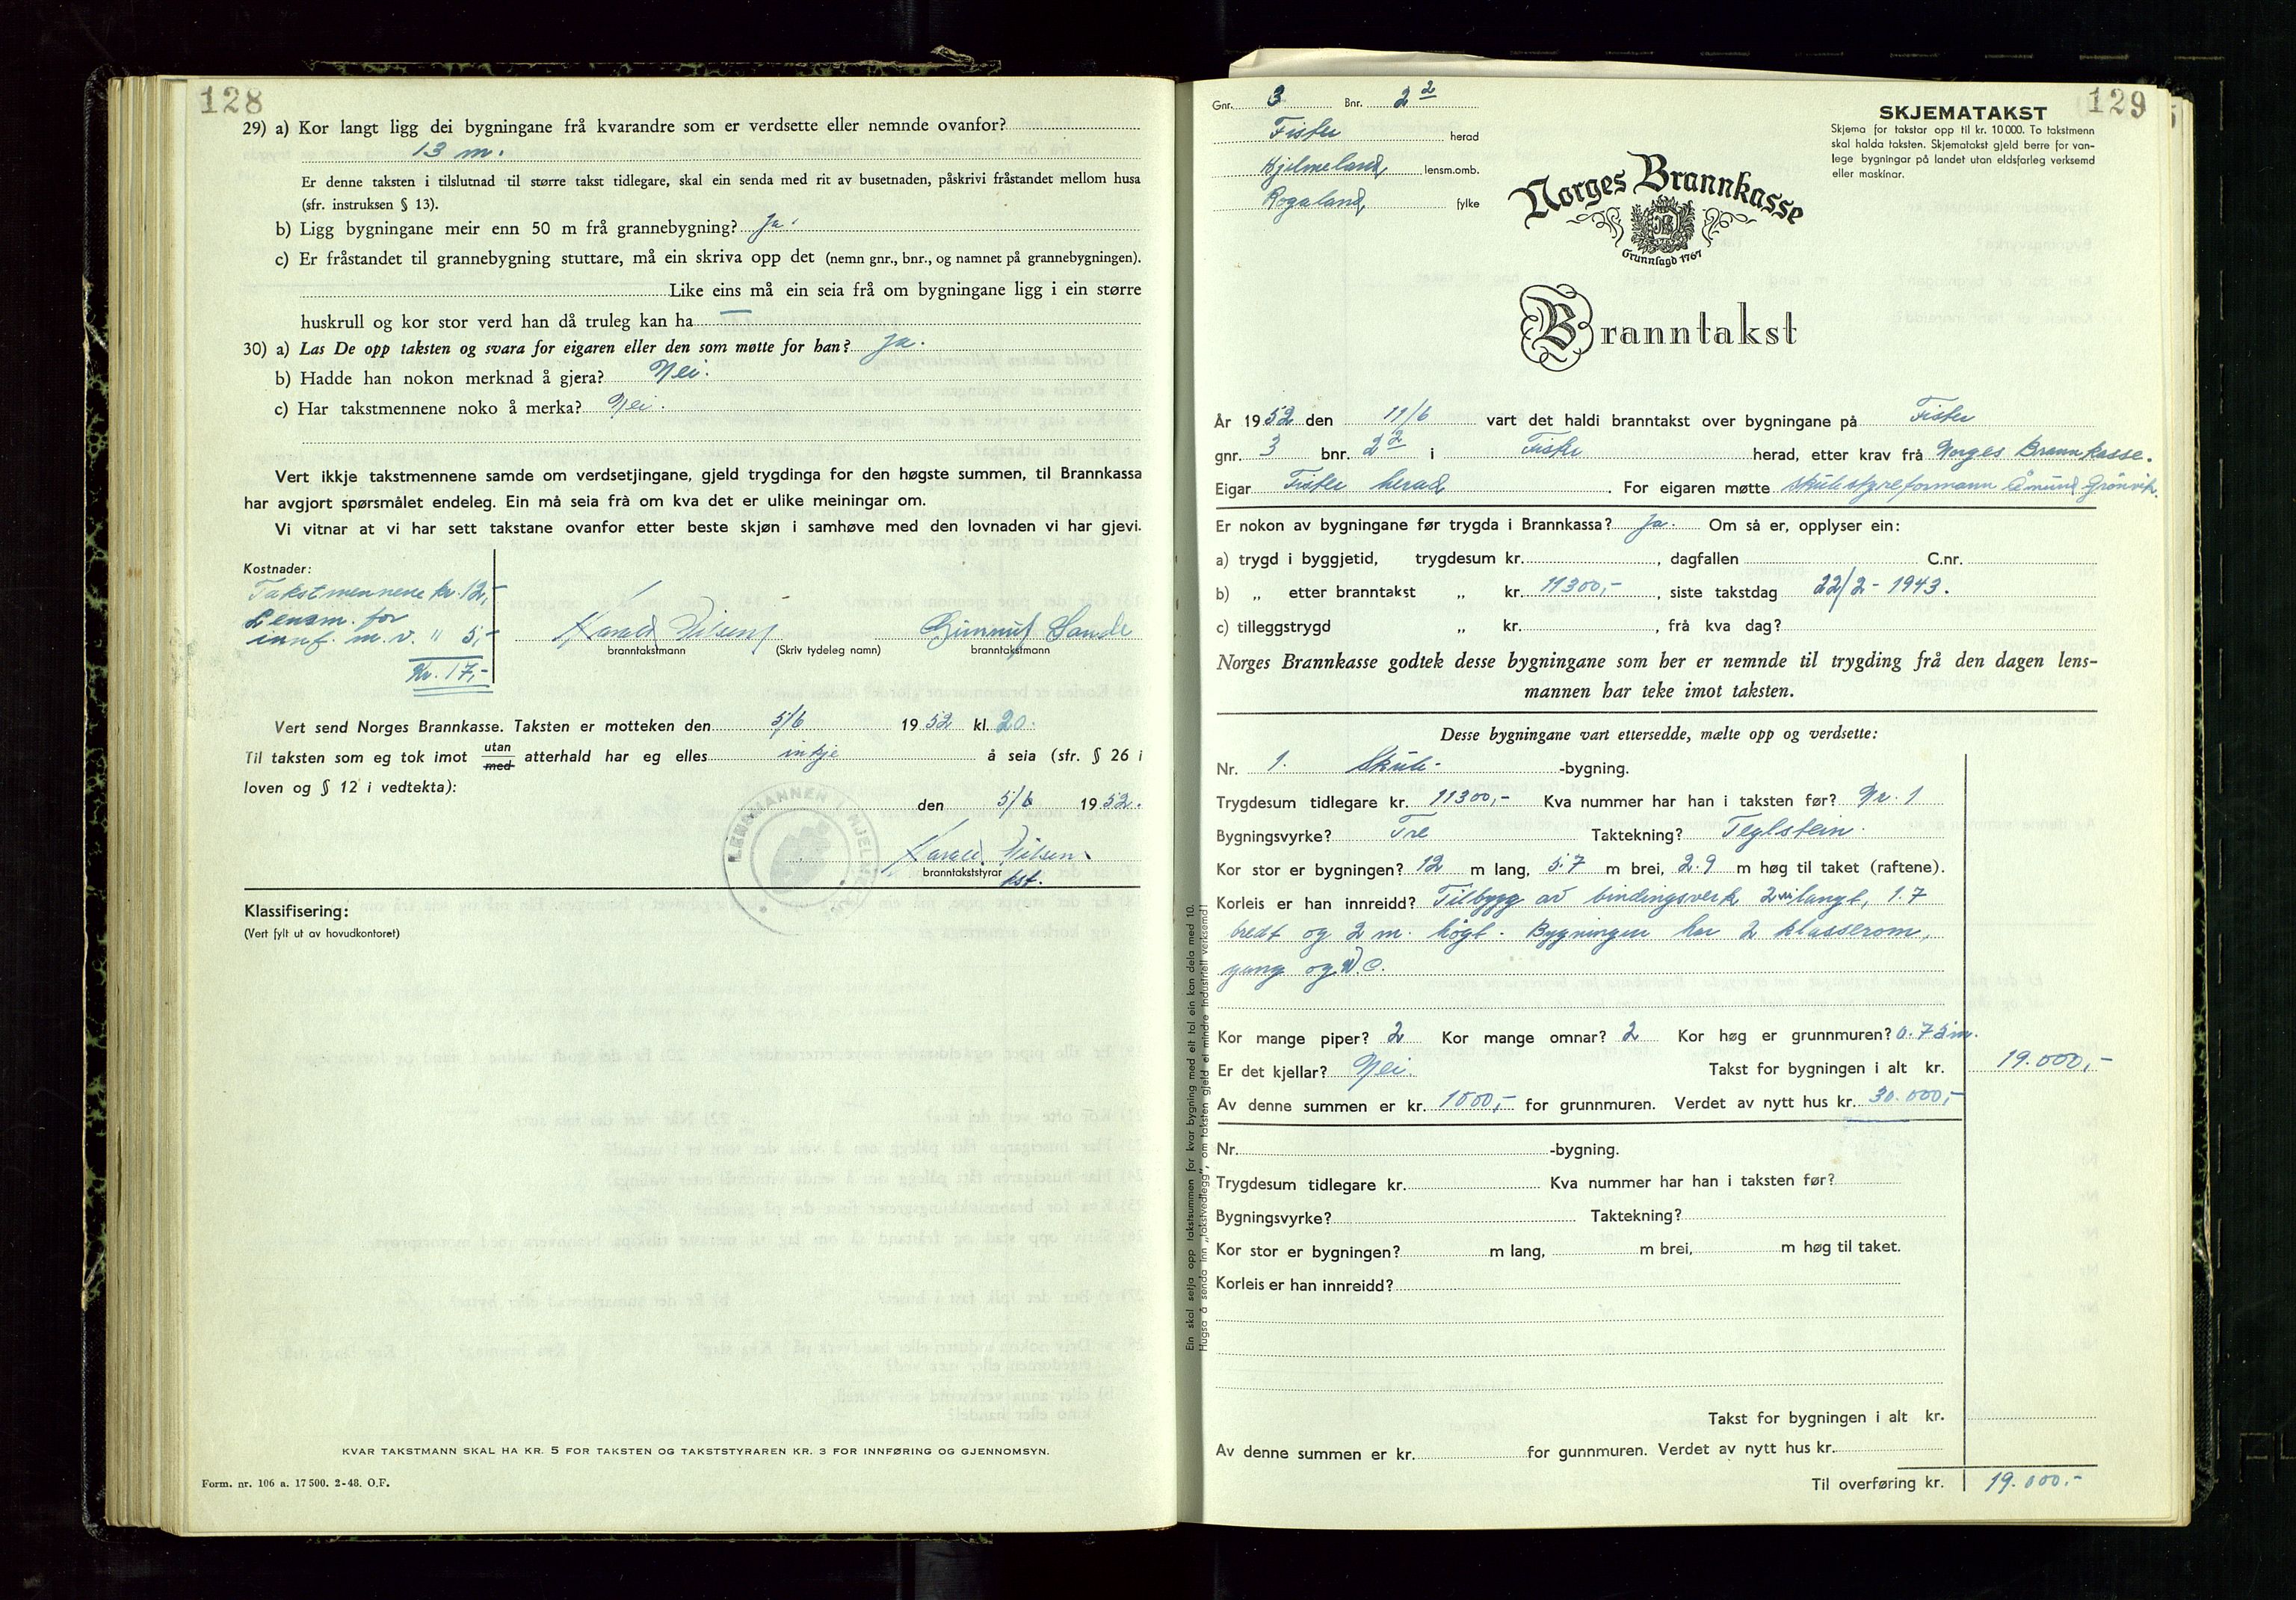 128
29) a) Kor langt ligg dei bygningane frå kvarandre som er verdsette eller nemnde ovanfor?
13 m.
Er denne taksten i tilslutnad til større takst tidlegare, skal ein senda med rit av busetnaden, påskrivi fråstandet mellom husa
(sfr. instruksen § 13).
b) Ligg bygningane meir enn 50 m frå grannebygning? Ja.
c) Er fråstandet til grannebygning stuttare, må ein skriva opp det (nemn gnr., bnr., og namnet på grannebygningen).
Like eins må ein seia frå om bygningane ligg i ein større
huskrull og kor stor verd han då truleg kan ha —
30) a) Las De opp taksten og svara for eigaren eller den som møtte for han? Ja.
b) Hadde han nokon merknad å gjera? Nei.
c) Har takstmennene noko å merka? Nei.
Vert ikkje takstmennene samde om verdsetjingane, gjeld trygdinga for den høgste summen, til Brannkassa
har avgjort spørsmålet endeleg. Ein må seia frà om kva det er ulike meiningar om.
Vi vitnar at vi har sett takstane ovanfor etter beste skjøn i samhøve med den lovnaden vi har gjevi.
Kostnader:
Takstmennene kr. 12,-
Lensm. for
innf. m.v. " 5,-
Kr. 17,-
Harald Nilsen Gunnulf Sande
branntakstmann (Skriv tydeleg namn) branntakstmann
Vert send Norges Brannkasse. Taksten er motteken den 5/6 1952 kl. 20.
Til taksten som eg tok imot utan/med atterhald har eg elles inkje å seia (sfr. § 26 i
loven og § 12 i vedtekta):
den 5/6 1952.
LENSMANNEN I HJELME
Harald Nilsen
branntakststyrar kst.
Klassifisering:
(Vert fylt ut av hovudkontoret)
KVAR TAKSTMANN SKAL HA KR. 5 FOR TAKSTEN OG TAKSTSTYRAREN KR. 3 FOR INNFØRING OG GJENNOMSYN.
Form. nr. 106 a. 17500. 2-48. O.F.
129
Gnr. 3 Bnr. 2 2
Fister herad
Hjelmeland, lensm.omb.
Rogaland, fylke
SKJEMATAKST
Skjema for takstar opp til kr. 10 000. To takstmenn
skal halda taksten. Skjematakst gjeld berre for van-
lege bygningar på landet utan eldsfarleg verksemd
eller maskinar.
Norges Brannkasse
Grunnlagd 1767
Branntakst
År 1952 den 11/6 vart det haldi branntakst over bygningane på Fister
gnr. 3 bnr. 2 2 i Fister herad, etter krav frå Norges Brannkasse.
Eigar Fister herad. For eigaren møtte skulestyreformann Åmund Grønvik.
Er nokon av bygningane før trygda i Brannkassa? Ja. Om så er, opplyser ein:
a) trygd i byggjetid, trygdesum kr. , dagfallen C.nr.
b) „ etter branntakst „ kr. 11300,- , siste takstdag 22/2 - 1943.
c) tilleggstrygd „ kr. , frå kva dag?
Norges Brannkasse godtek desse bygningane som her er nemnde til trygding frå den dagen lens-
mannen har teke imot taksten.
Desse bygningane vart ettersedde, mælte opp og verdsette:
Nr. 1. Skule- -bygning.
Trygdesum tidlegare kr. 11300,- Kva nummer har han i taksten før? Nr. 1
Bygningsvyrke? Tre Taktekning? Teglstein.
Kor stor er bygningen? 12 m lang, 5.7 m brei, 2.9 m høg til taket (raftene).
Korleis er han innreidd? Tilbygg av bindingsverk 2 m langt, 1.7
bredt og 2 m. høgt. Bygningen har 2 klasserom,
gang og W.C.
Kor mange piper? 2 Kor mange omnar? 2 Kor høg er grunnmuren? 0.75 m.
Er det kjellar? Nei. Takst for bygningen i alt kr. 19.000,-
Av denne summen er kr. 1000,- for grunnmuren. Verdet av nytt hus kr. 30.000,-
Nr. -bygning.
Trygdesum tidlegare kr. Kva nummer har han i taksten før?
Bygningsvyrke? Taktekning?
Kor stor er bygningen? m lang, m brei, m høg til taket.
Korleis er han innreidd?
Takst for bygningen i alt kr.
Av denne summen er kr. for gunnmuren. Verdet av nytt hus kr.
Til overføring kr. 19.000.-
Ein skal setja opp takstsummen for kvar bygning med eit tal ein kan dela med 10.
Hugsa å senda inn „takstvedlegg", om taksten gjeld ei mindre industriell verksemd!